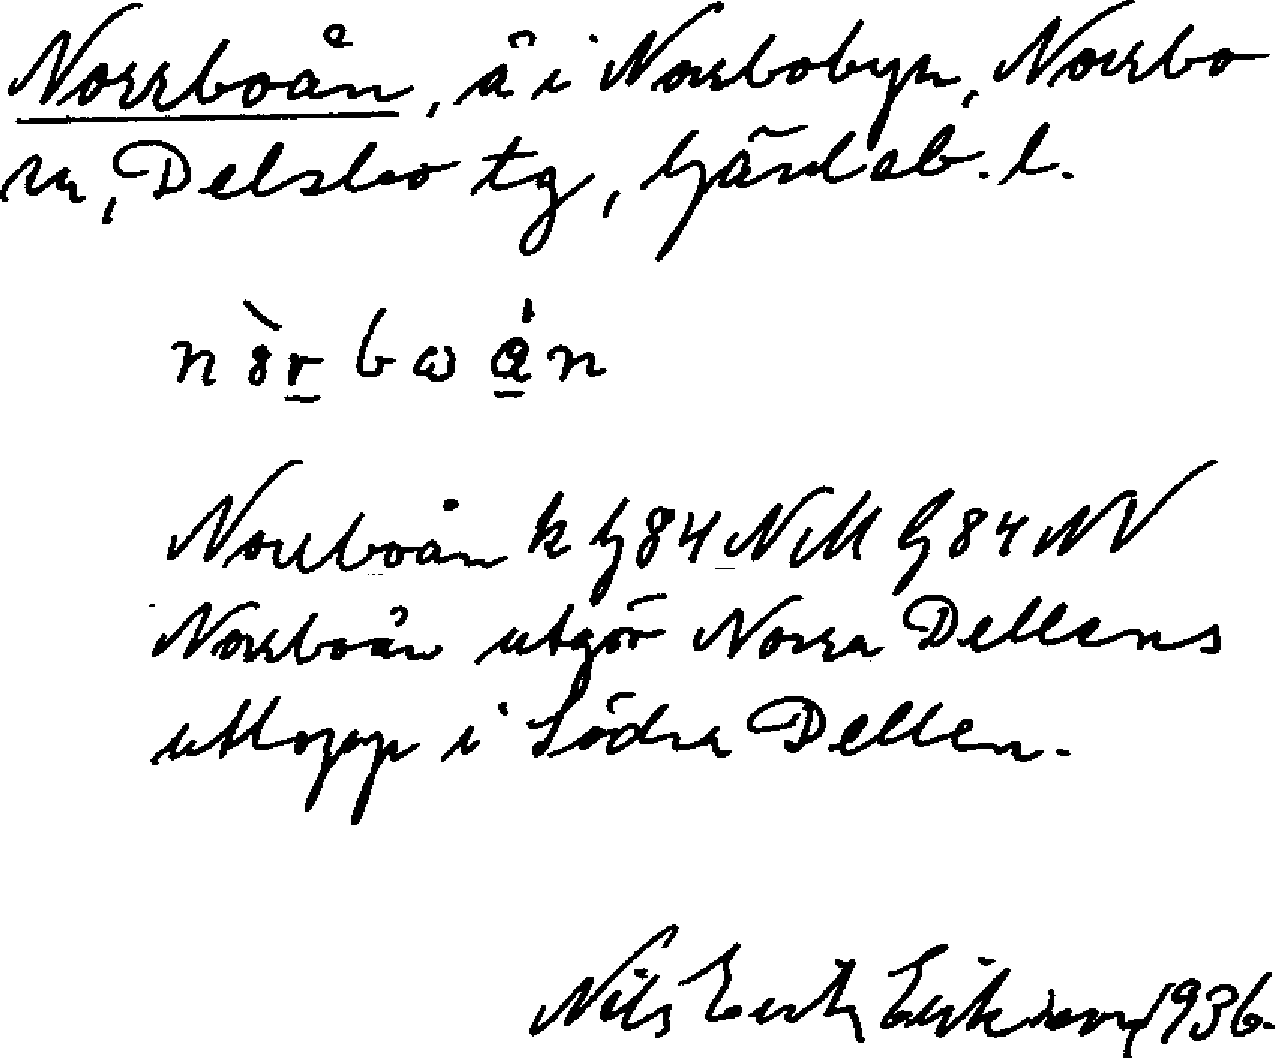 Norrboån, å i Norrbobyn, Norrbo
sn, Delsbo tg, Gävleb. l.
Norrboån k G 84 NM G 84 NV
Norrboån utgör Norra Dellens
utlopp i Södra Dellen.
Nils Erik Eriksson 1936.